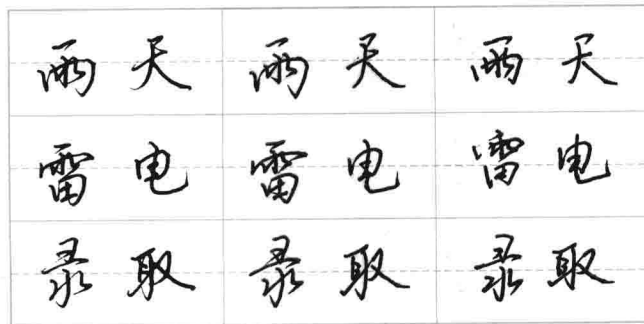 雨天 雨天 雨天
雷电 雷电 雷电
录取 录取 录取